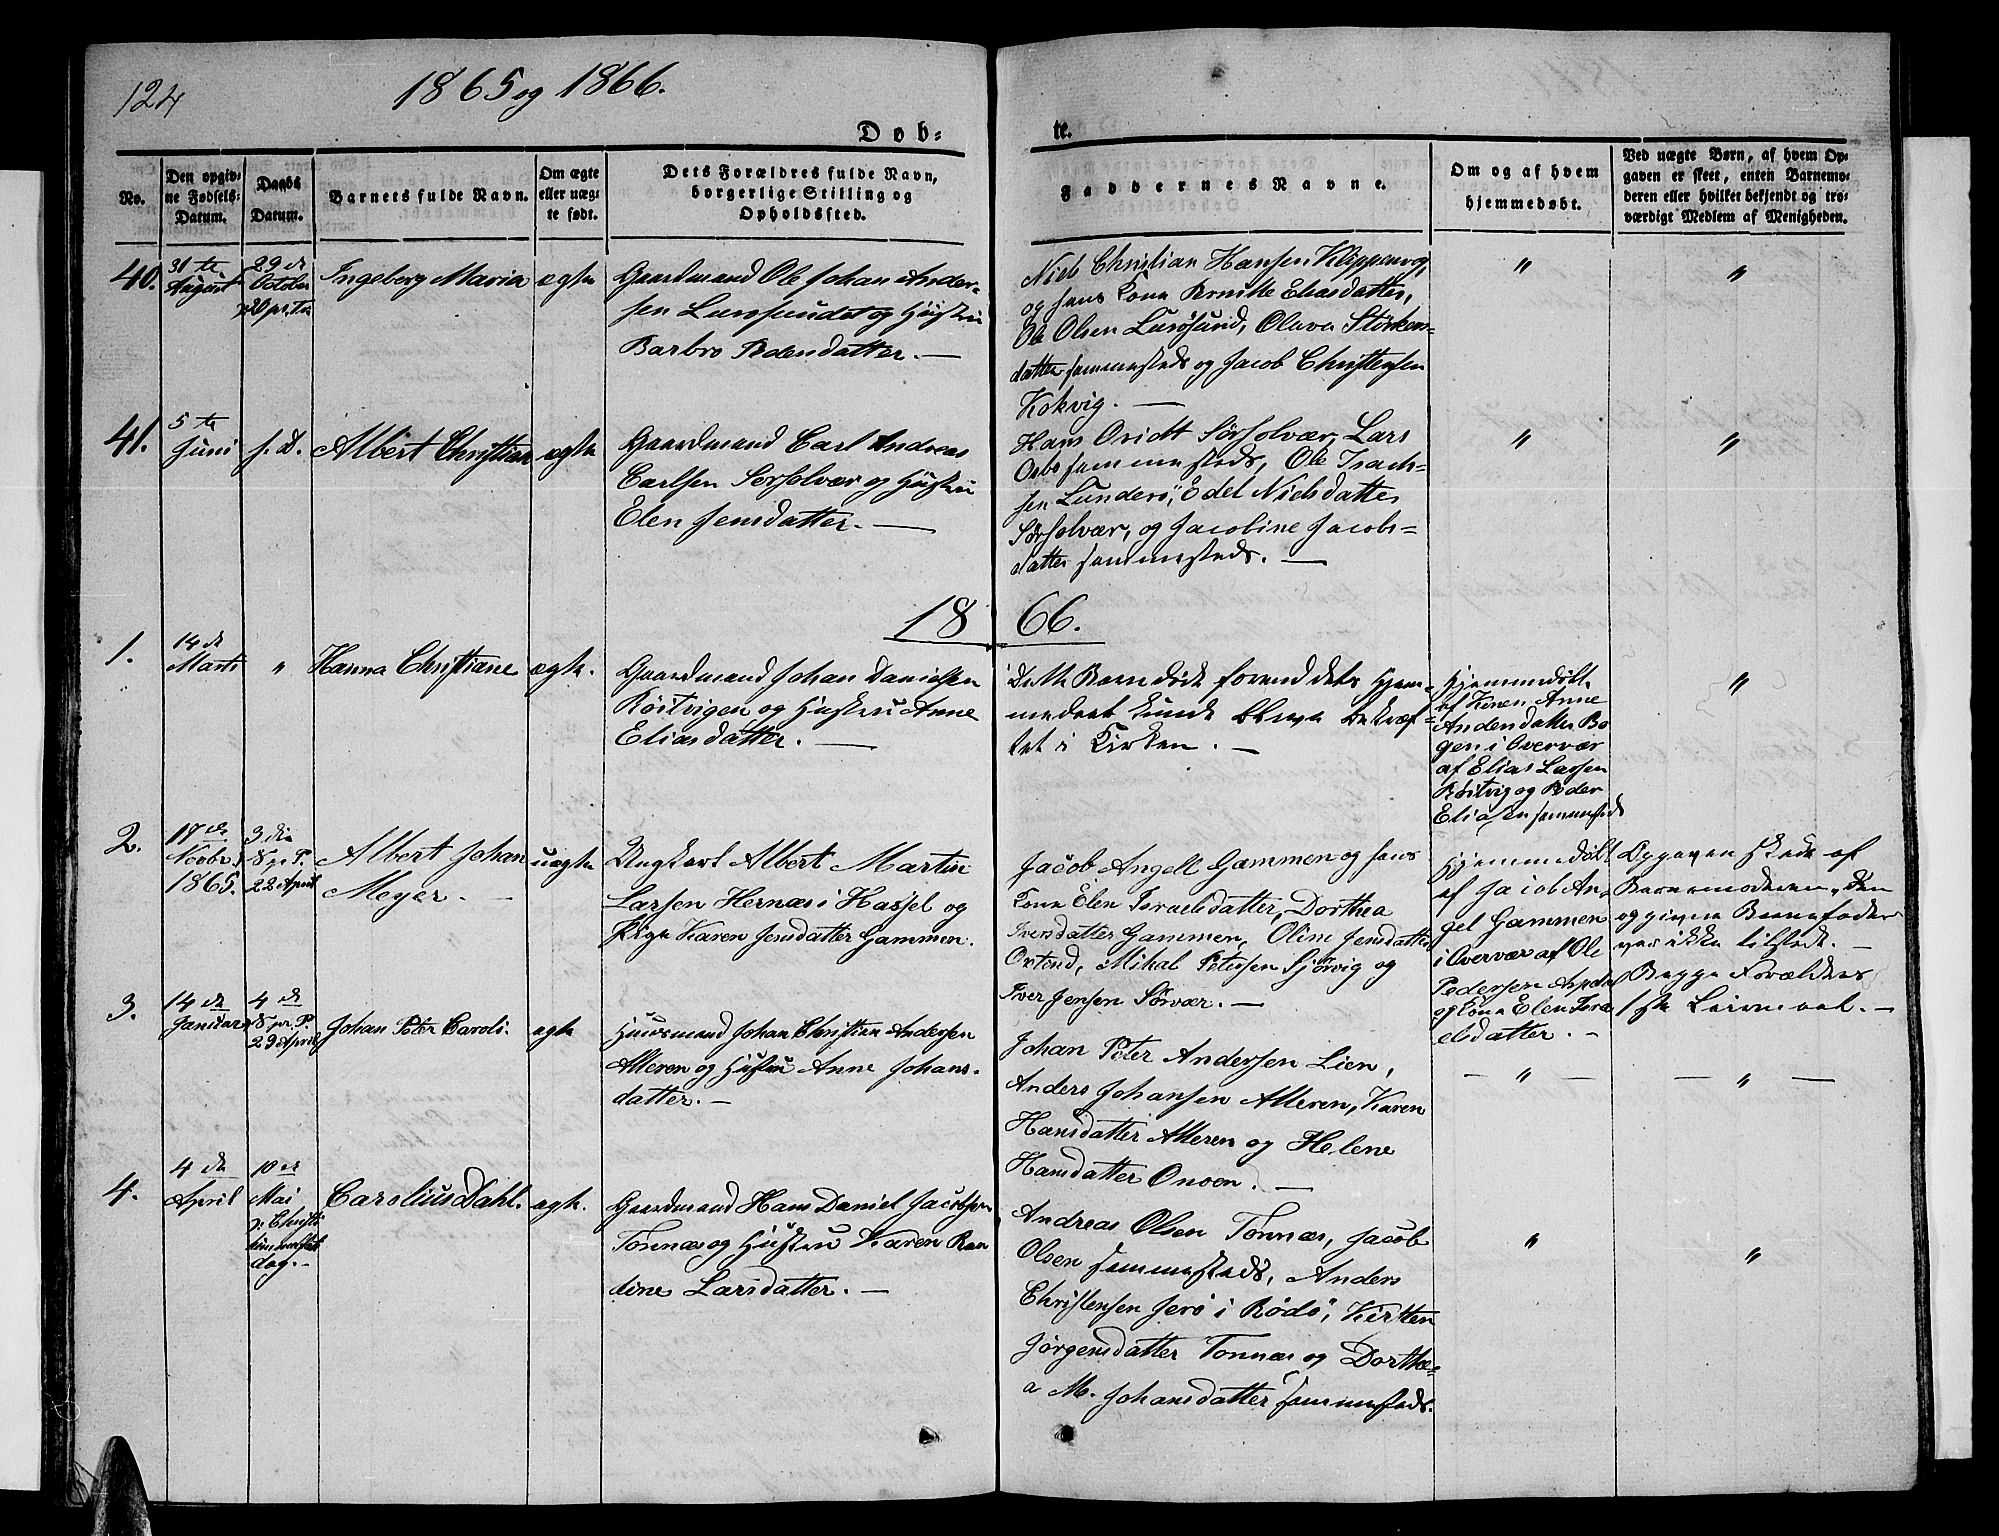 124
1865 og 1866.
Døb=
te.
No.
Den opgiv-
ne Fødsels-
Datum.
Daabs
Datum.
Barnets fulde Navn.
Om ægte
eller uæg-
te født.
Dets Forældres fulde Navn,
borgerlige Stilling og
Opholdssted.
Faddernes Navne.
Om og af hvem
hjemmedøbt.
Ved uægte Børn, af hvem Op-
gaven er skeet, enten Barnemo-
deren eller hvilket bekjendt og tro-
værdigt Medlem af Menigheden.
40.
31te
August
29de
October
Ingeberg Maria
ægte
Gaardmand Ole Johan Ander-
sen Lurøsundet og Hustru
Barbro Pedersdatter. —
Niels Christian Hansen Klippenvog,
og hans Kone Bernitte Eliasdatter,
Ole Olsen Lurøsund, Olava Størkers-
datter sammesteds og Jacob Christensen
Kokvig. —
"
"
41.
5te
Juni
s. D.
Albert Christian
ægte
Gaardmand Carl Andreas
Carlsen Sørsolvær og Hustru
Elen Jensdatter. —
Hans Sørsolvær, Lars
sammesteds, Ole Isach-
sen Lunderø, Edel Nielsdatter
Sørsolvær, og Jacobine Jacobs-
datter sammesteds. —
"
"
1866.
1.
14de
Marts
"
Hanna Christiane
ægte.
Gaardmand Johan Danielsen
Røstvigen og Hustru Anne
Eliasdatter. —
Dette Barn døde forend dets Hjem-
medaab kunde blive bekræf-
tet i Kirken. —
Hjemmedøbt
af Konen Anne
Andersdatter Bo
gen i Overvær
af Elias Larsen
Røstvig og Peder
Eliasen sammesteds
"
2.
17de
Novbr
1865.
3die
S. p. P.
22 April
Albert Johan
Meyer. —
uægte
Ungkarl Albert Martin
Larsen Hernæs i Hassel og
Pige Karen Jensdatter Gammen.
Jacob Angell Gammen og hans
Kone Elen Israelsdatter, Dorthea
Iversdatter Gammen, Oline Jensdatter
Mikal Petersen Sjørvig og
Iver Jensen Sørvær. —
Hjemmedøbt
af Jacob An-
gel Gammen
i Overvær af Ole
Pedersen
og Kone Elen Isra
elsdatter. —
Opgaven skede af
Barnemoderen, den
opgivne Barnefader
var ikke tilstede. —
Begge Forældres
1ste Leiermaal. —
3.
14de
Januar
4de
S. p. P.
29 April
Johan Peter Caroli.
ægte
Huusmand Johan Christian Andersen
Alteren og Hustru Anne Johans-
datter. —
Johan Peter Andersen Lien,
Anders Johansen Alteren, Karen
Hansdatter Alteren og Helene
Hansdatter Onøen. —
— " —
— " —
4.
4de
April
10de
Mai
Christi
Himmelfart
dag. —
Carolius Dahl.
ægte.
Gaardmand Hans Daniel Jacobsen
Tonnæs og Hustru Karen Ran
dine Larsdatter. —
Andreas Olsen Tonnæs, Jacob
Olsen sammesteds, Anders
Christensen Jerø i Rødø, Kirsten
Jørgensdatter Tonnæs og Dorthe=
a M. Johansdatter sammesteds.
"
"